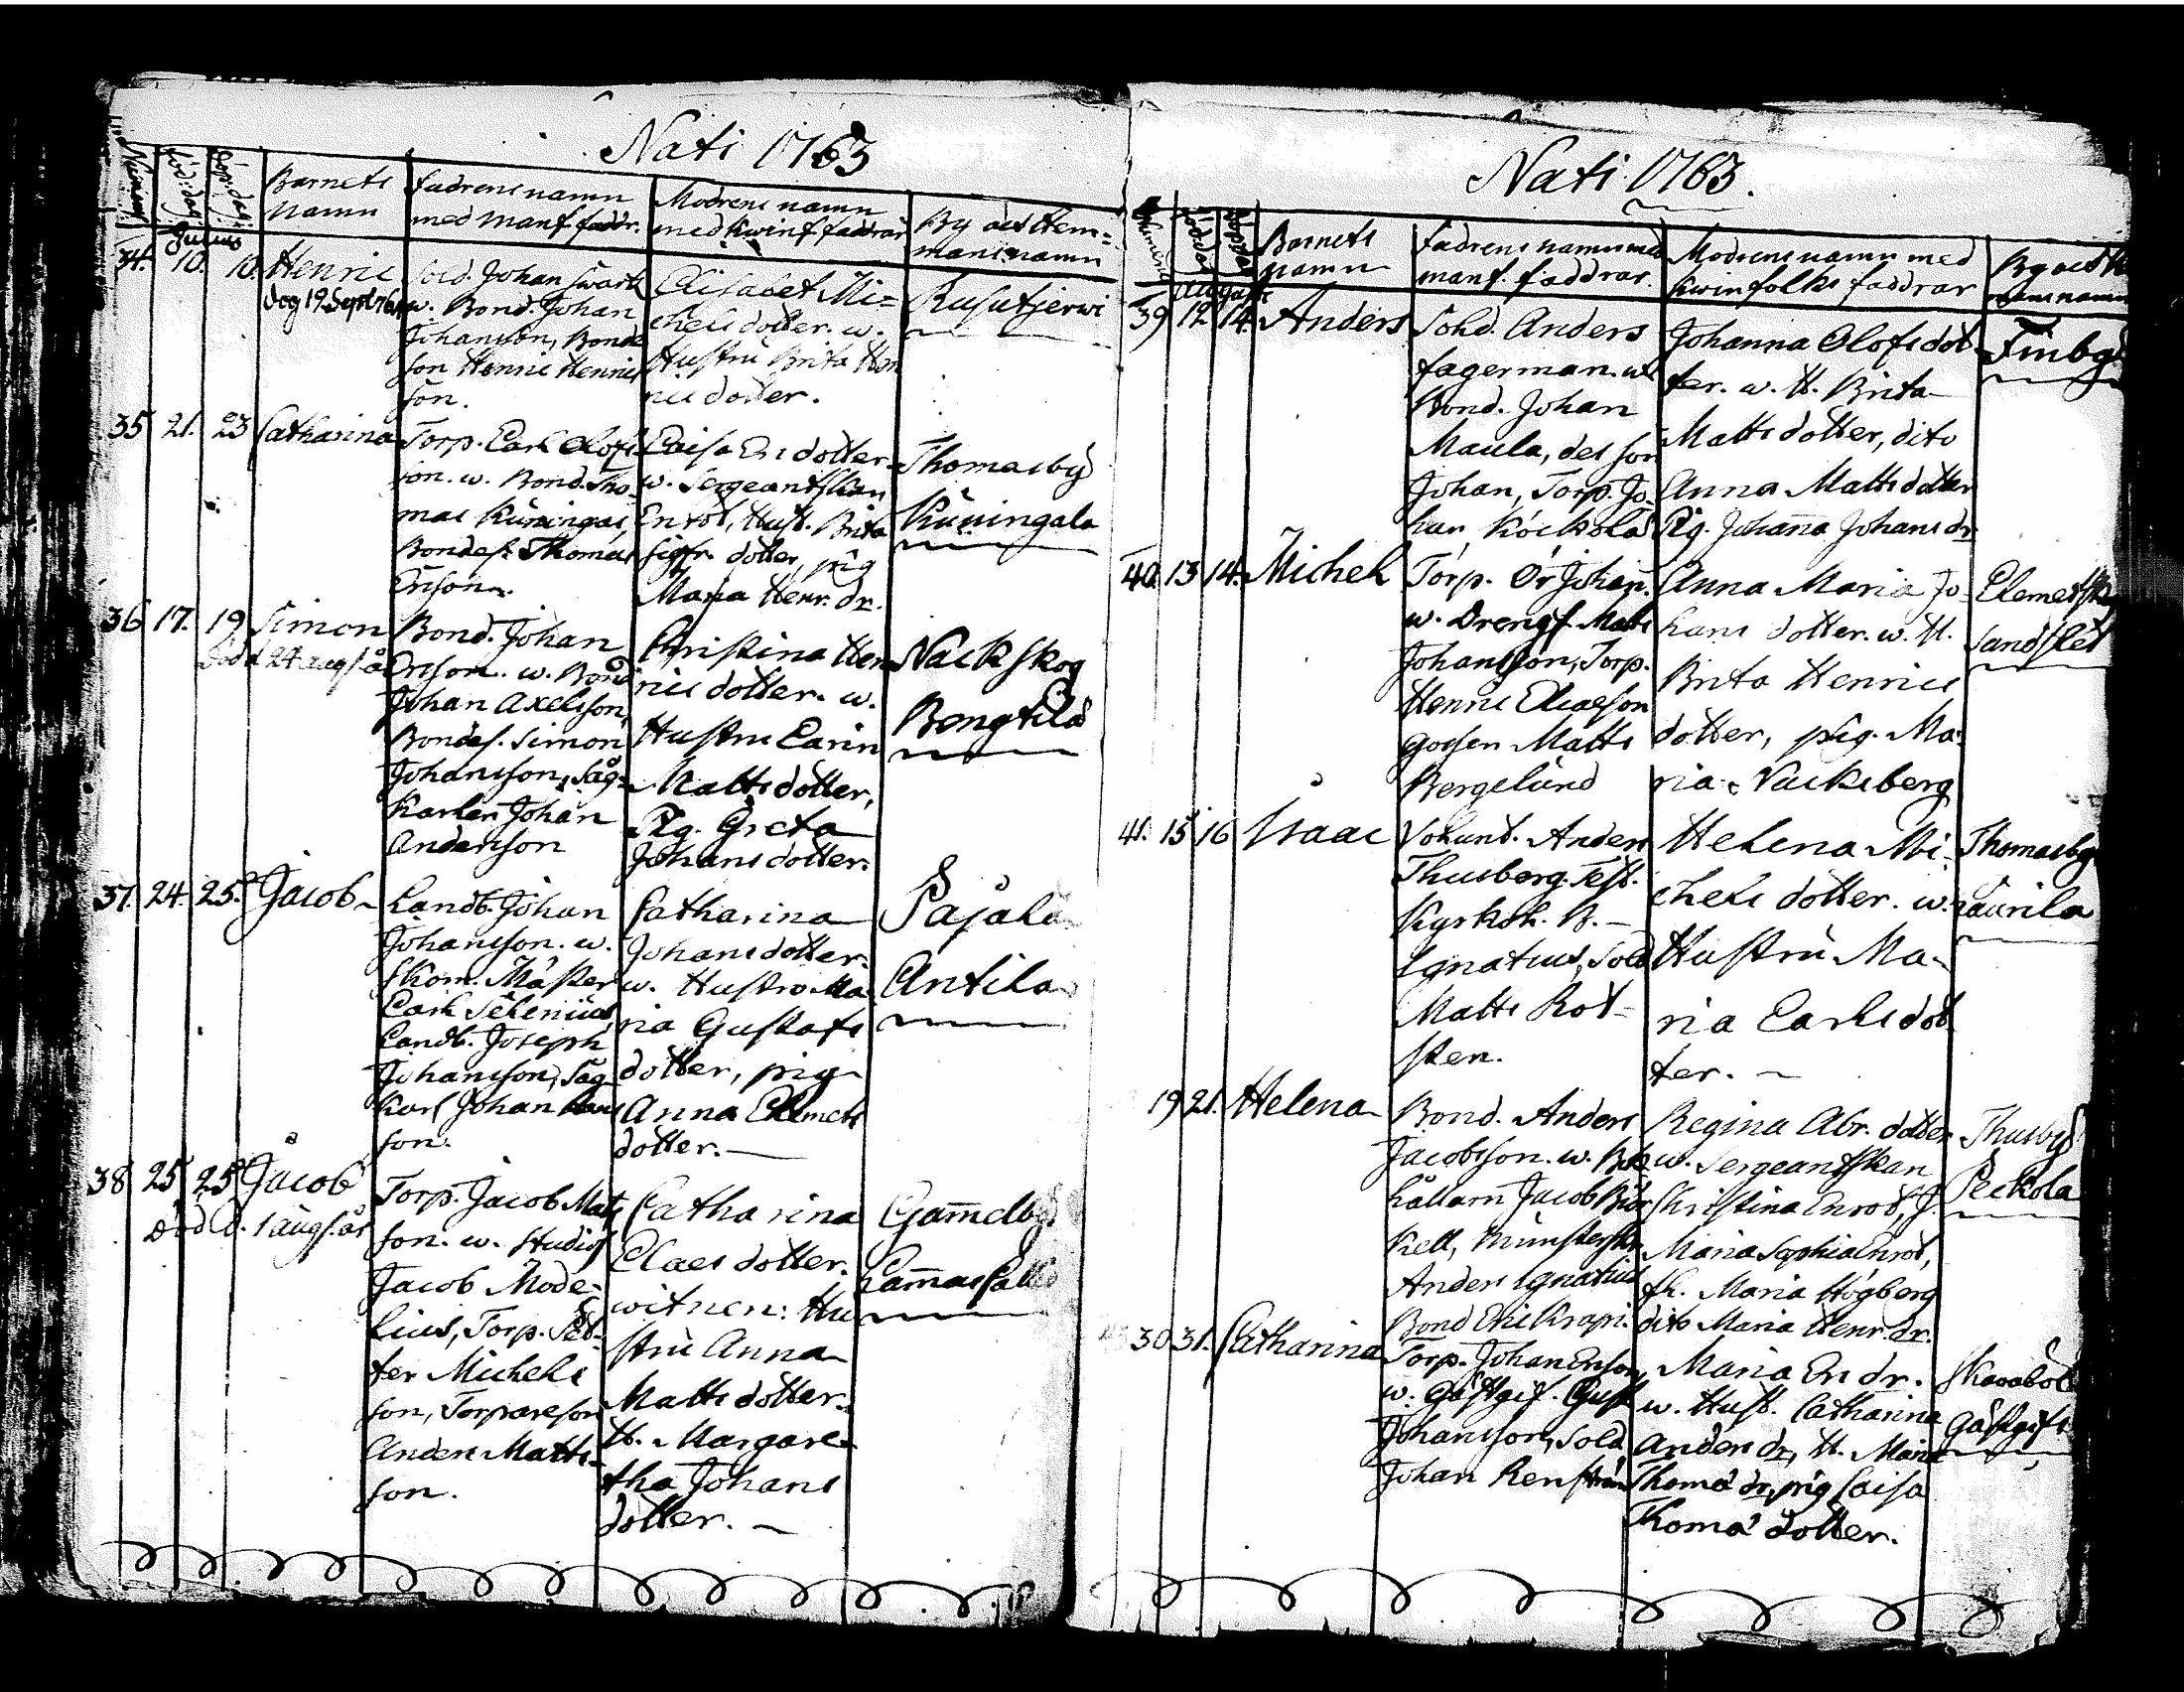 Nati 1763
Numeri
föd: dag
döp: dag
Barnets
Namn
Fadrens namn
med Manf faddr.
Modrens namn
med kwinf faddrar
By och Hem=
mans namn
Julius
34. 10. 10. Henric
dog 19 Sept.
Sold. Johan Swart
w. Bond. Johan
Johansson, Bonde
son Henric Henrics
son.
Elisabet Mi=
chels dotter. w.
Hustru Brita Hen
rics dotter.
Rusutjerwi
35 21. 23 Catharina
Torp. Carl Olofs
son. w. Bond. Tho-
mas Kuningas,
Bondes. Thomas
Ersson.
Caisa Ers dotter
w. Sergeantskan
Enrot, Hust. Brita
Sigfr. dotter, pig
Maria Henr. dr.
Thomasby
Kuningala
36 17. 19 Simon
död d 24 aug s. å
Bond. Johan
Ersson. w. Bond
Johan Axelsson,
Bondes. Simon
Johansson, Såg-
Karlen Johan
Andersson
Christina Hen
rics dotter. w.
Hustru Carin
Matts dotter,
Pig. Greta
Johans dotter.
Nackskog
Bengtila
37. 24. 25. Jacob
Landb. Johan
Johansson. w.
Skom. Mäster
Carl Selenius,
Landb. Joseph
Johansson, Såg
Karl Johan
son.
Catharina
Johans dotter.
w. Hustro Ma
ria Gustafs
dotter, pig
Anna Clemets
dotter.
Pajala
Antila
38 25 25 Jacob
död d. 1 aug s. år
Torp. Jacob Mats
son. w. Studios
Jacob Mode-
lius, Torp. Pet-
ter Michels
son, Torpareson
Anders Matts-
son.
Catharina
Claes dotter.
witnen: Hu
stru Anna
Matts dotter.
H. Margare
tha Johans
dotter.
Gammelby
Nati 1763.
Numeri
född
döpt
Barnets
namn
Fadrens namn med
manf. faddrar.
Modrens namn med
kwinfolks faddrar
By och
mans namn
Augusti
39 12 14. Anders
Sold. Anders
Fagerman. w.
Bond. Johan
Maula, des son
Johan, Torp. Jo-
han Köckola
Johanna Olofs dot
ter. w. H. Brita
Matts dotter, dito
Anna Matts dotter
Pig. Johanna Johans dr
Finby
40 13 14. Michel
Torp. Er Johan.
w. Drengf. Mats
Johansson, Torp.
Henric Eliaeson
Gossen Matts
Bergelund
Anna Maria Jo-
hans dotter. w. H.
Brita Henrics
dotter, pig. Ma-
ria Nackeberg
Sandslet
41. 15 16 Isaac
Volunt. Anders
Thusberg. Test.
Kyrkoh. B.
Ignatius, Sold
Matts Rot-
sten.
Helena Mi-
chels dotter. w.
Hustru Ma-
ria Carls dot
ter.
Thomasby
Laurila
19 21. Helena
Bond. Anders
Jacobsson. w. Bok
hållarn Jacob Biör
kell, Münsterskr.
Anders Ignatius
Bond Eric Krapi.
Regina Abr. dotter
w. Sergeantskan
Christina Enrot, J.
Maria Sophia Enrot,
H. Maria Högberg
dito Maria Henr. dr.
Thusby
Peckola
30 31. Catharina
Torp. Johan Ersson,
w. Gästgif. Gust
Johansson, Sold
Johan Renström
Maria Ers dr.
w. Hust. Catharina
Anders dr, H. Maria
Thoma dr, pig Caisa
Thoma dotter.
Skavaböle
Gästgifs